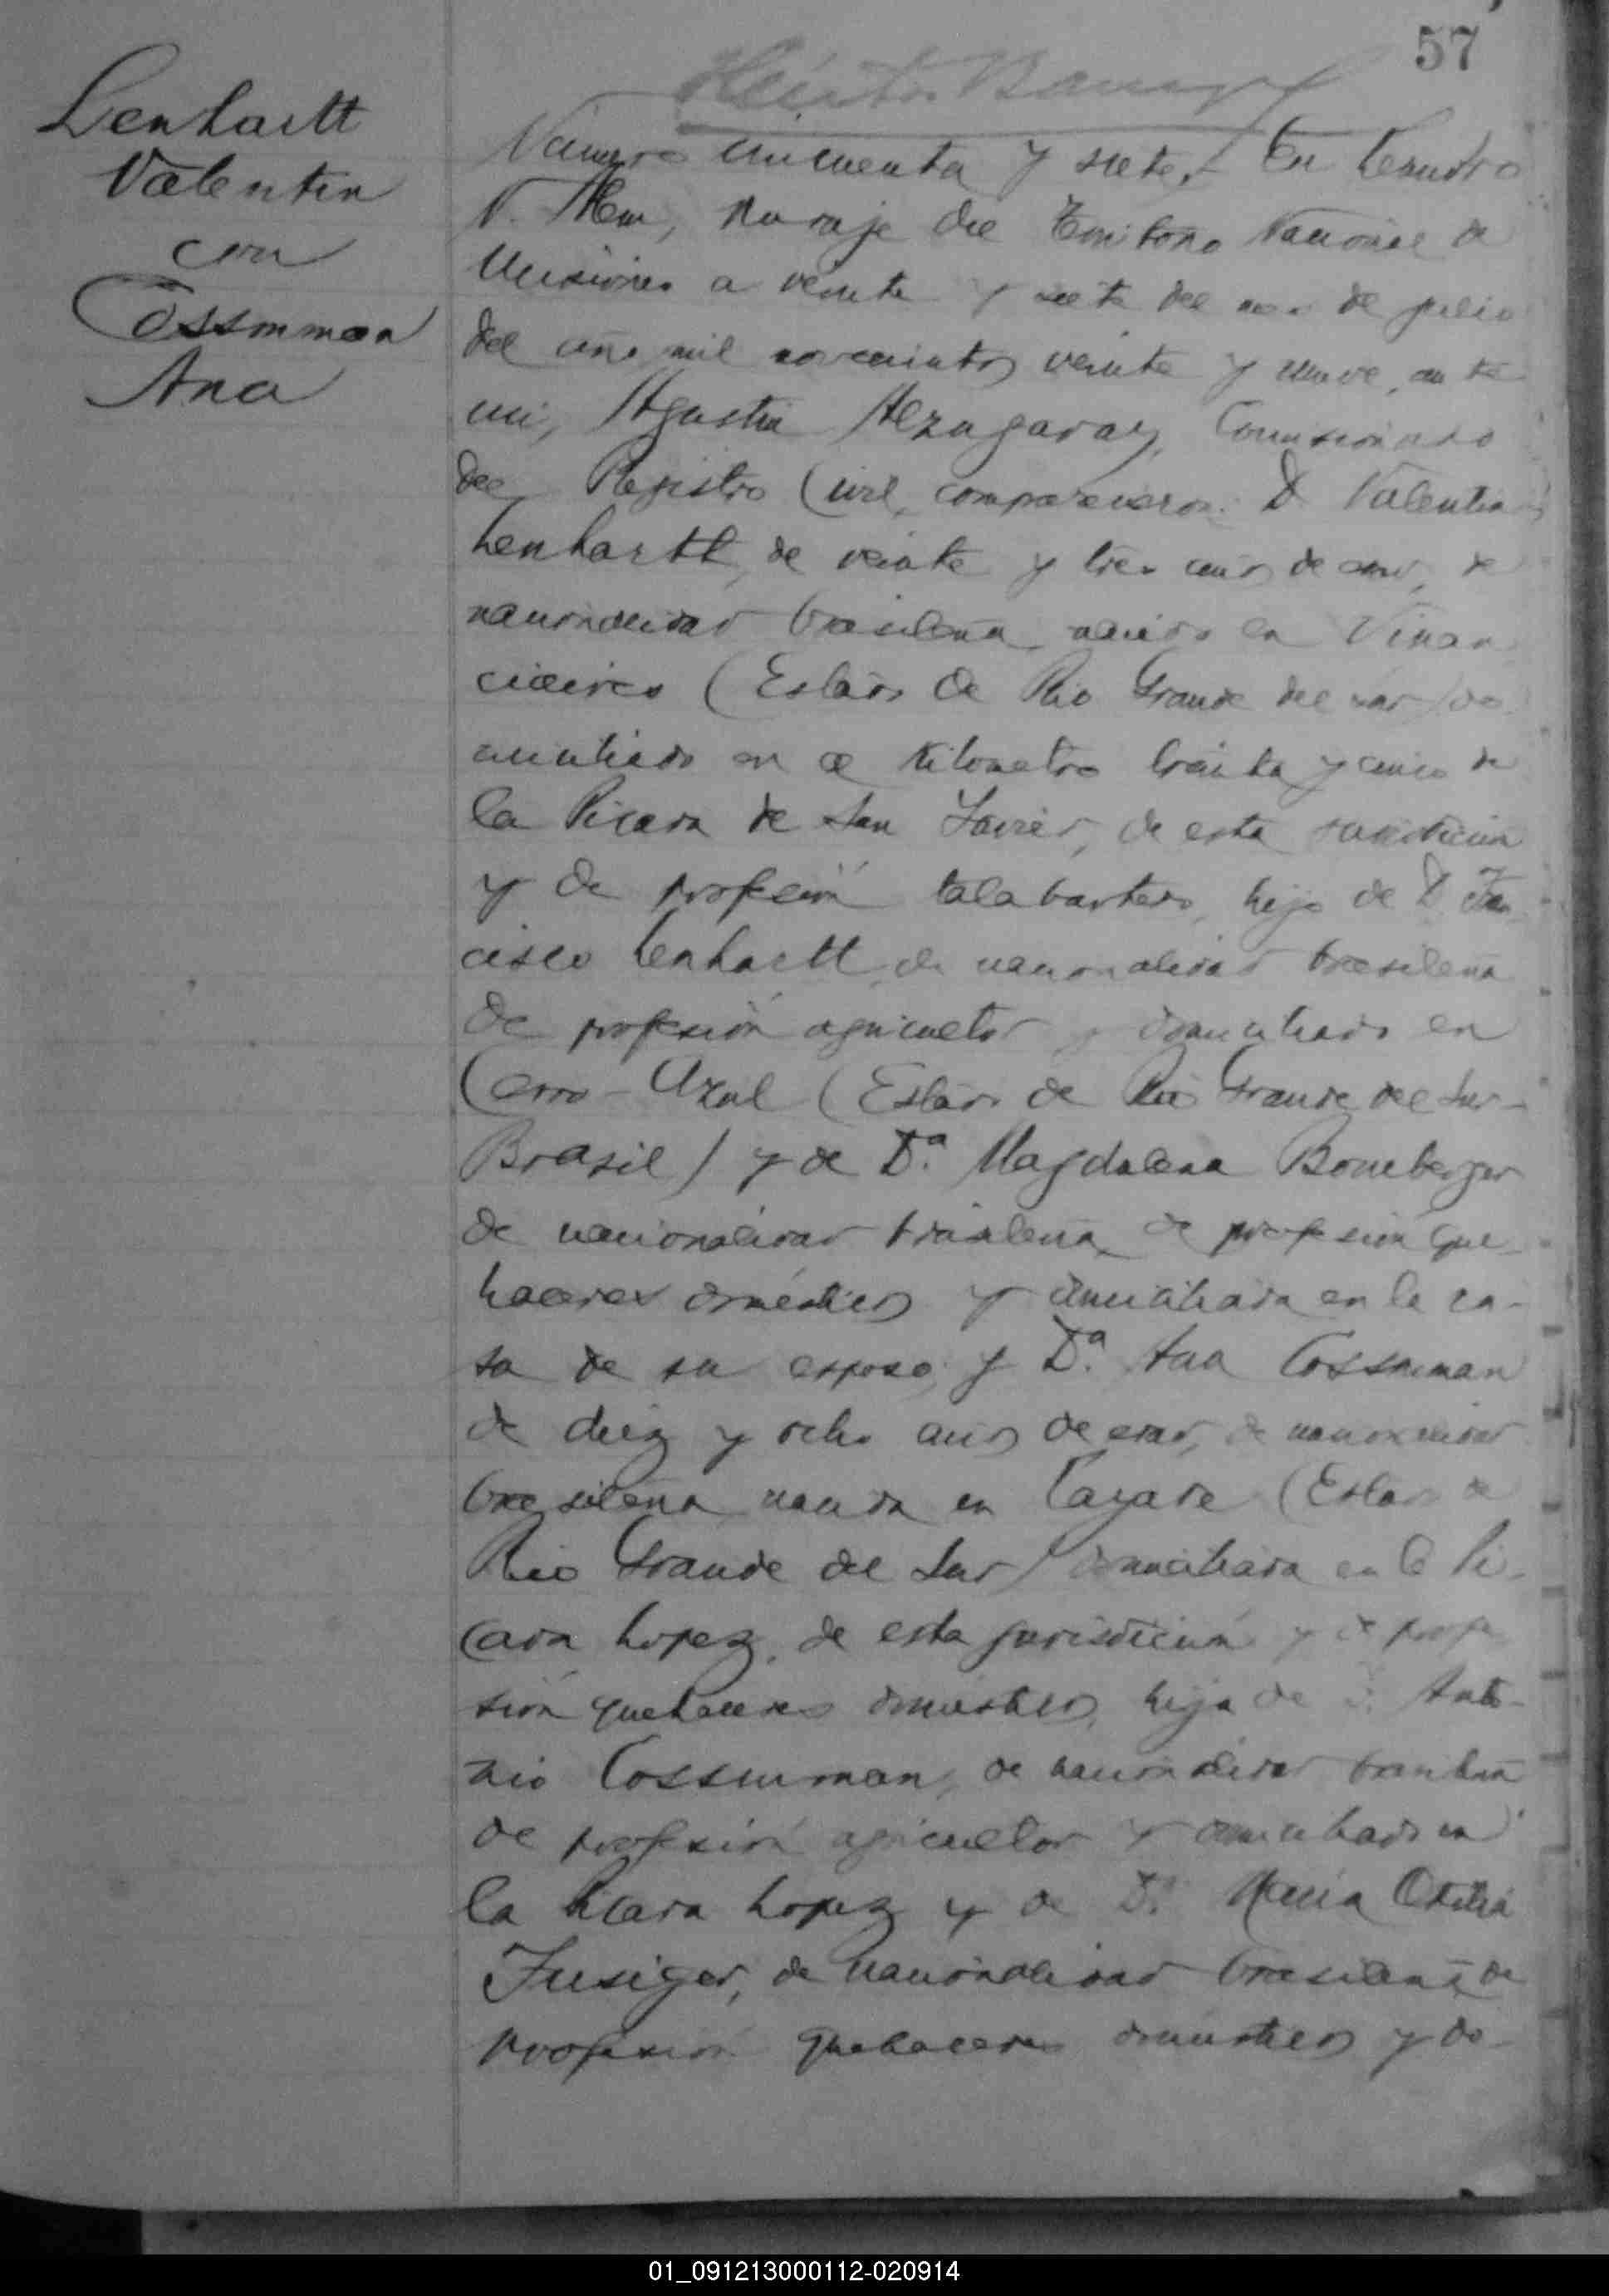 57
Lenhartt
Valentin
con
Cossmman
Ana
Número cincuenta y siete.- En Leandro
N. Alem, paraje del Territorio Nacional de
Misiones a veinte y siete del mes de julio
del año mil novecientos veinte y nueve, ante
mi, Agustin Alzugaray, Comisionado
del Registro Civil, comparecieron: D. Valentin
Lenhartt, de veinte y tres años de edad, de
nacionalidad brasileña, nacido en Vinan
cieires (Estado de Rio Grande del Sur) do-
miciliado en el kilometro treinta y cinco de
la Picada de San Javier, de esta jurisdicción
y de profesión talabartero, hijo de D. Fran-
cisco Lenhartt, de nacionalidad brasileña
de profesión agricultor y domiciliado en
Cerro-Azul (Estado de Rio Grande del Sur-
Brasil) y de Dª. Magdalena Bomberger
de nacionalidad brasileña, de profesión que-
haceres domésticos y domiciliada en la ca-
sa de su esposo; y Dª. Ana Cossmman
de diez y ocho años de edad, de nacionalidad
brasileña nacida en (Estado de
Rio Grande del Sur) domiciliada en la Pi-
cada Lopez, de esta jurisdicción y de profe
sión quehaceres domésticos, hija de D. Anto-
nio Cossmman, de nacionalidad brasileña
de profesión agricultor y domiciliado en
la Picada Lopez y de Dª. Maria Otilia
Jusiger, de nacionalidad brasileña, de
profesión quehaceres domésticos y do-
01_091213000112-020914